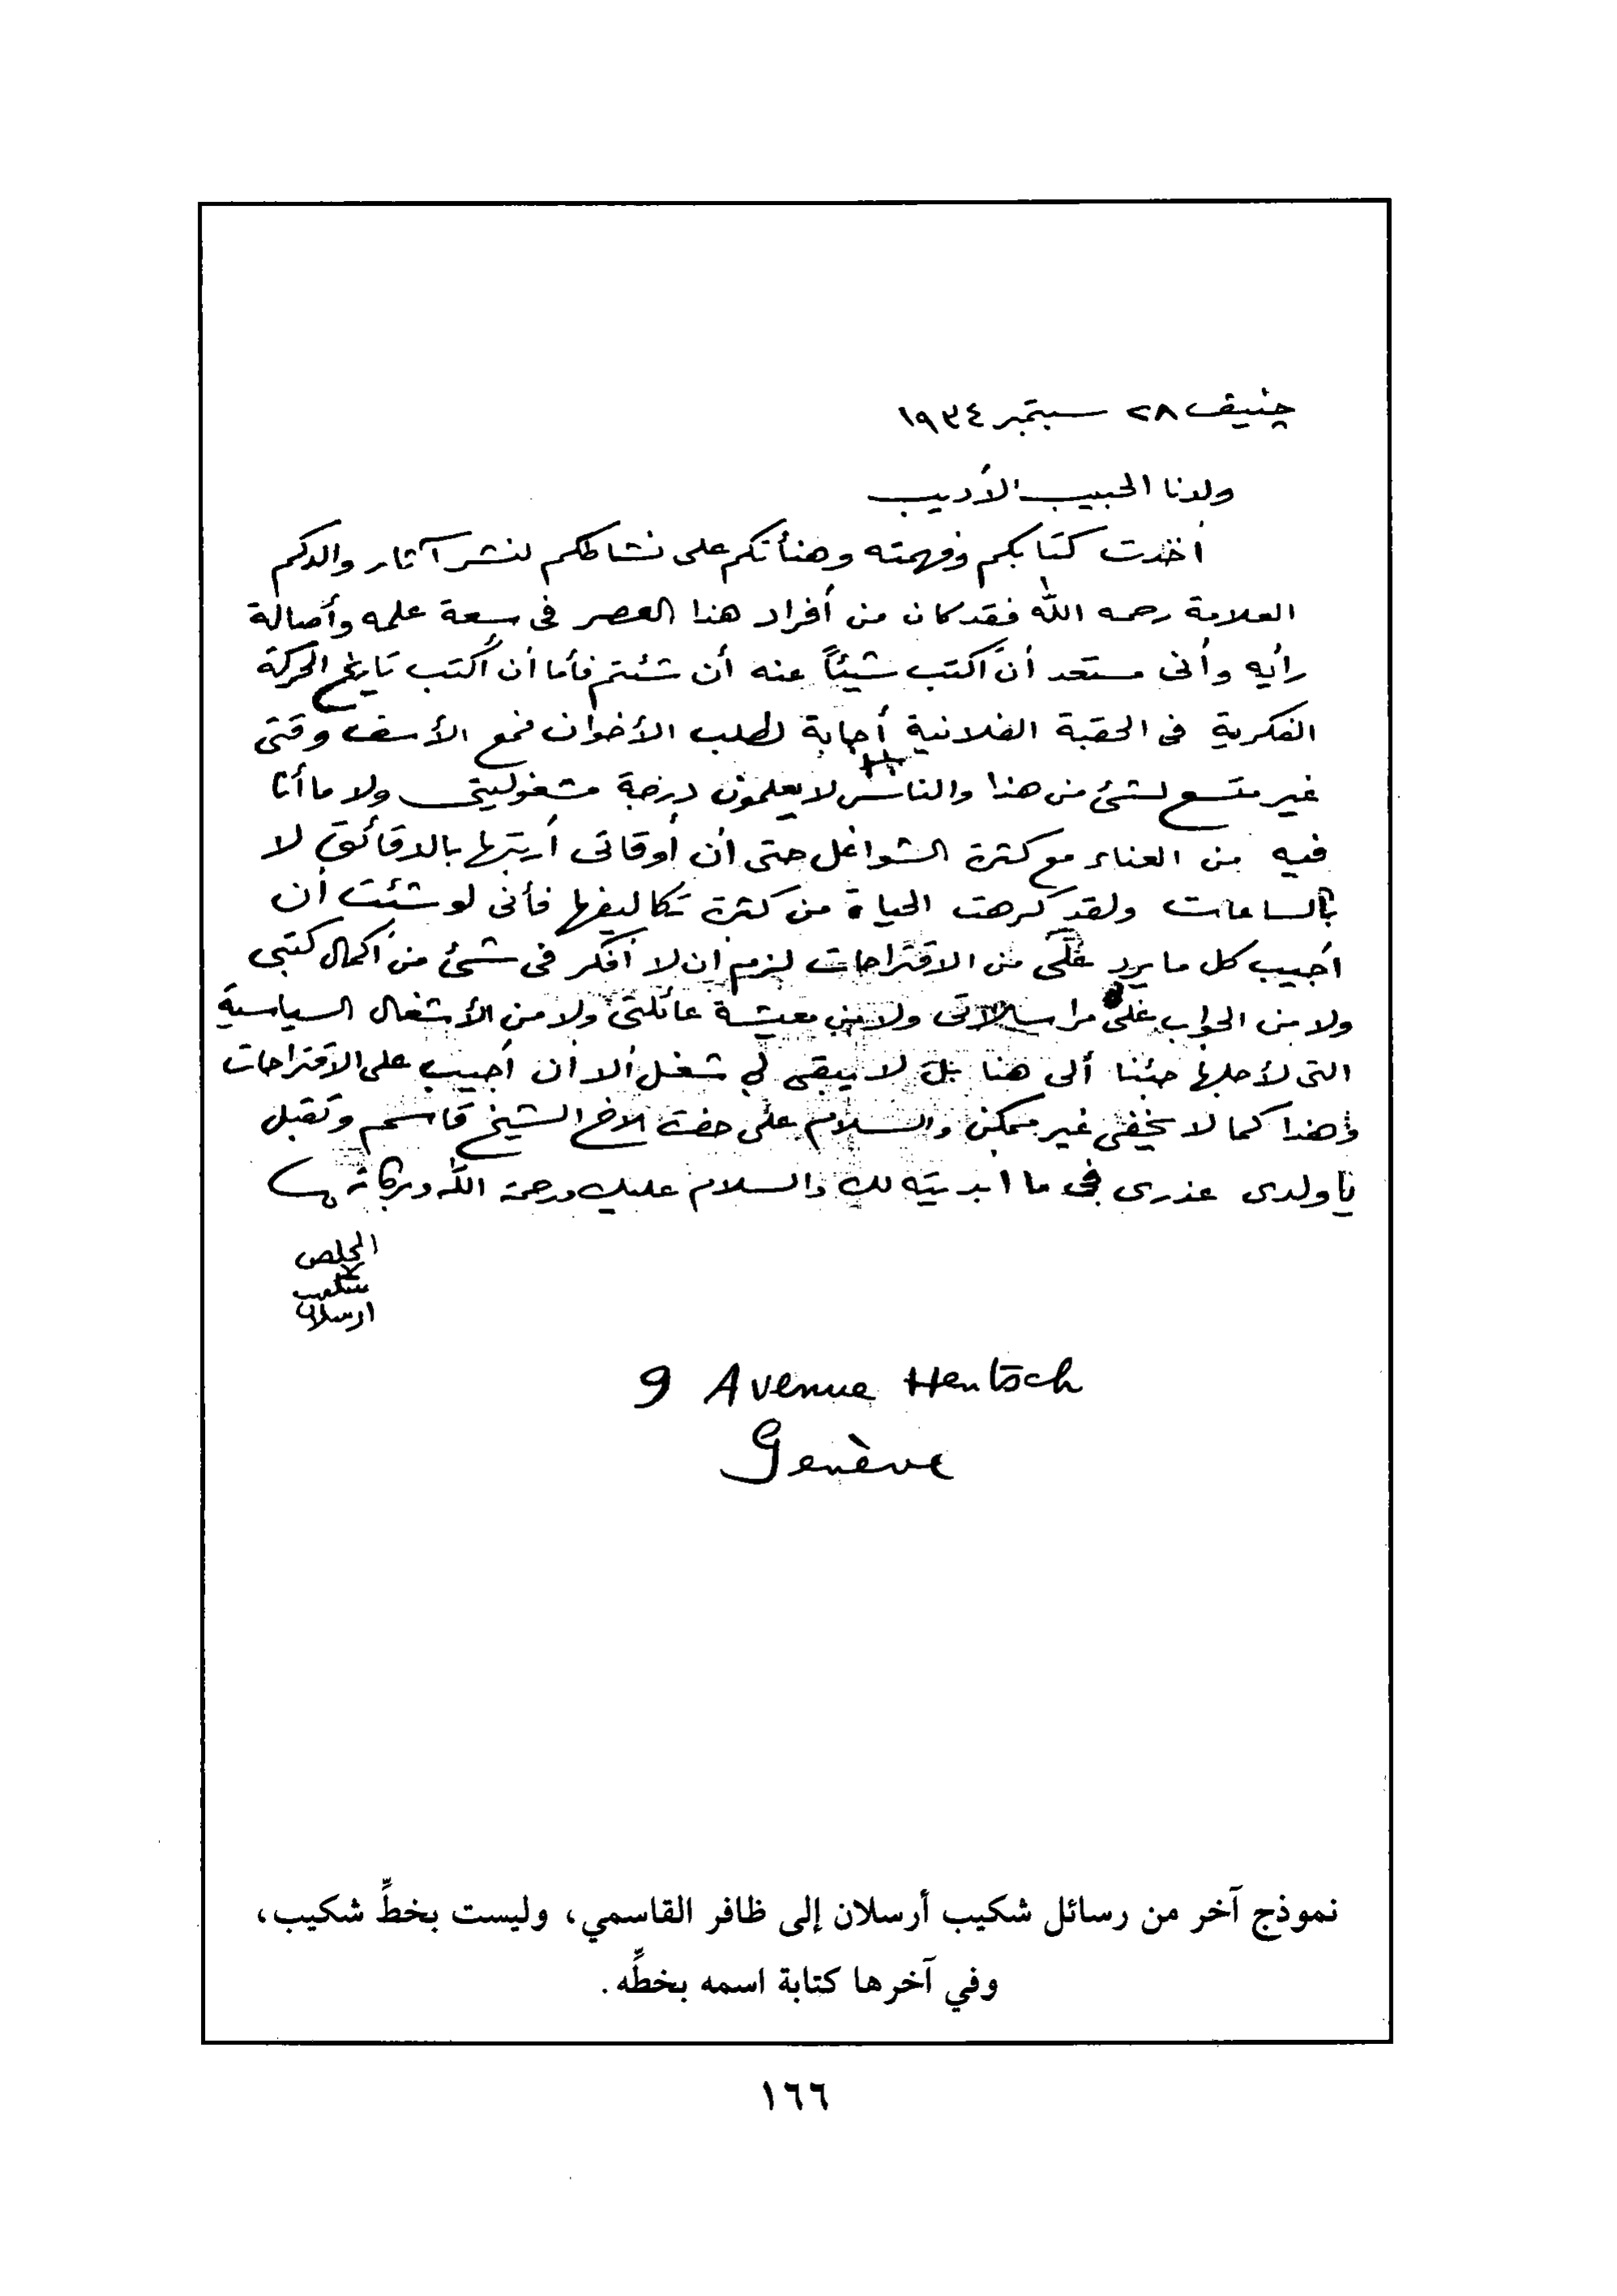 جنيف ٢٨ سبتمبر ١٩٣٤
ولدنا الحبيب الأديب
أخذت كتابكم وفهمته وهنأتكم على نشاطكم لنشر آثار والدكم
العلامة رحمه الله فقد كان من أفراد هذا العصر فى سعة علمه وأصالة
رأيه وأنى مستعد أن أكتب شيئاً عنه أن شئتم فأما أن أكتب تاريخ الحركة
الفكرية فى الحقبة الفلانية أجابة لطلب الأخوان فمع الأسف وقتى
غير متسع لشئ من هذا والناس لا يعلمون درجة مشغوليتى ولا ما أنا
فيه من العناء مع كثرة الشواغل حتى أن أوقاتى أرتبها بالدقائق لا
بالساعات ولقد كرهت الحياة من كثرة تكاليفها فأنى لو شئت أن
أجيب كل ما يرد علىّ من الاقتراحات لزم أن لا أفكر فى شئ من أكمال كتبى
ولا من الجواب على مراسلاتى ولا من معيشة عائلتى ولا من الأشغال السياسية
التى لأجلها جئنا ألى هنا بل لا يبقى لي شغل ألا أن أجيب على الاقتراحات
وهذا كما لا يخفى غير ممكن والسلام على حضرة الاخ الشيخ قاسم وتقبل
يا ولدى عذرى فى ما ابديته لك والسلام عليك ورحمة الله وبركاته
المخلص
شكيب
ارسلان
9 Avenue Hentsch
Genève
نموذج آخر من رسائل شكيب أرسلان إلى ظافر القاسمي، وليست بخطِّ شكيب،
وفي آخرها كتابة اسمه بخطِّه.
١٦٦